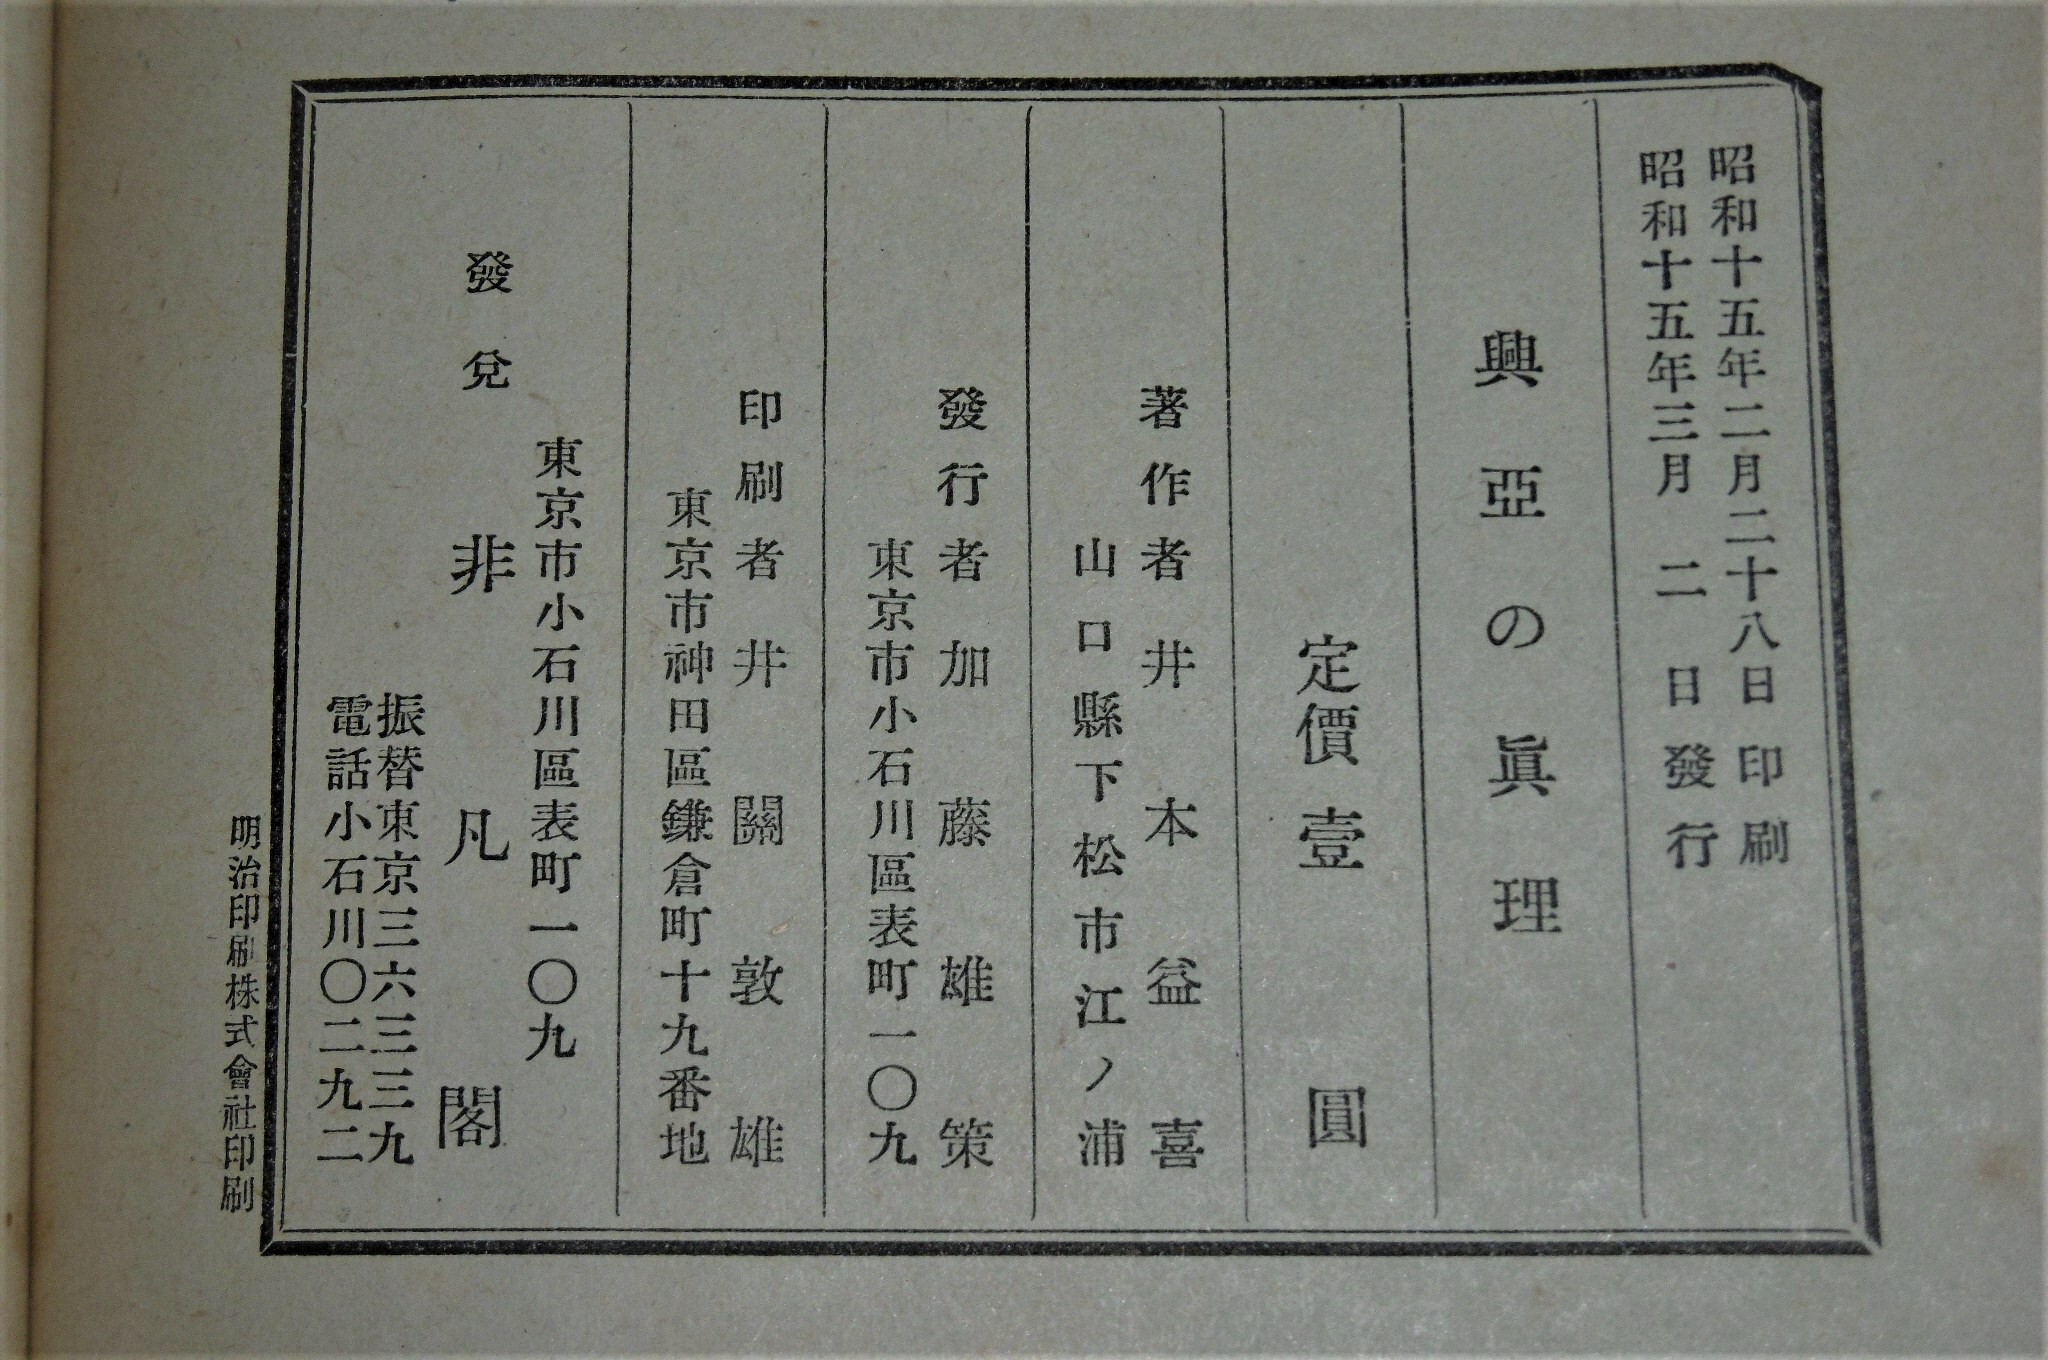 昭和十五年二月二十八日印刷
昭和十五年三月二日發行
興亞の眞理
定價壹圓
著作者井本益喜
山口縣下松市江ノ浦
發行者加藤雄策
東京市小石川區表町一〇九
印刷者井關敦雄
東京市神田區鎌倉町十九番地
東京市小石川區表町一〇九
發兌非凡閣
振替東京三六三三九
電話小石川〇二九二
明治印刷株式會社印刷